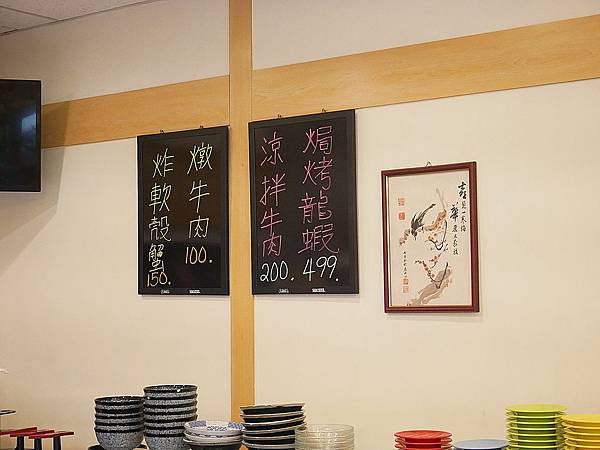 燉牛肉 100.
炸軟殼蟹 150.
焗烤龍蝦 499.
涼拌牛肉 200.